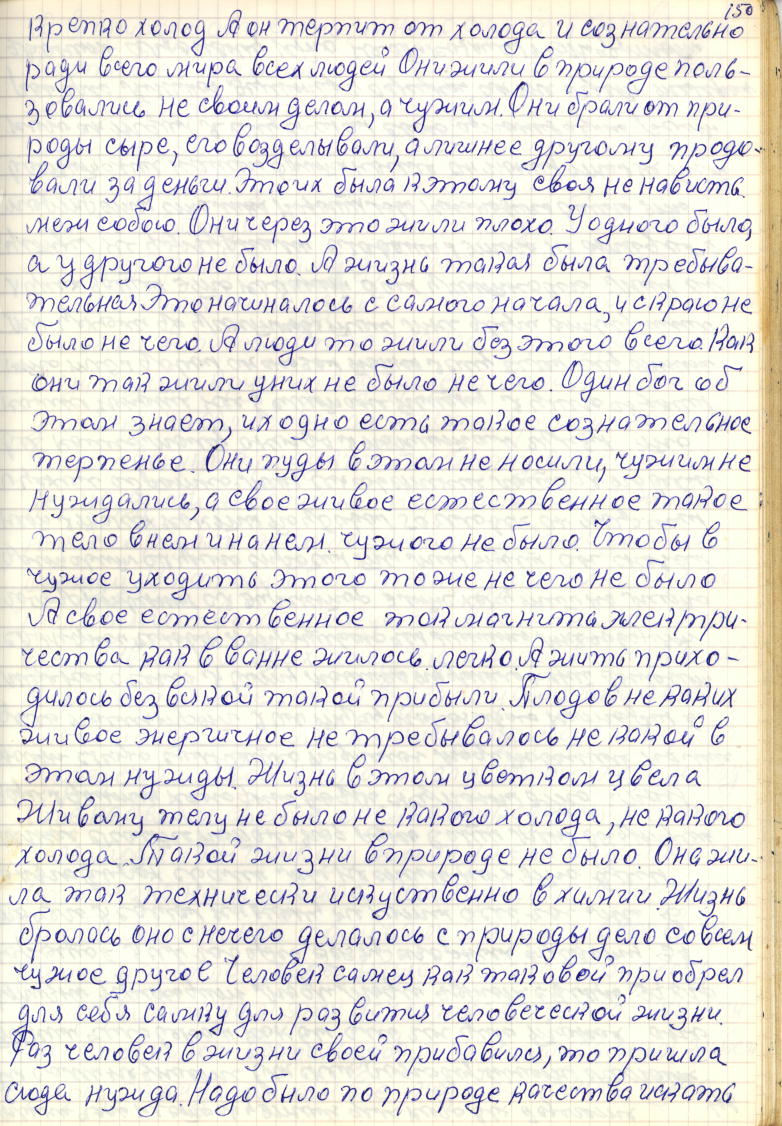 150
крепко холод А он терпит от холода и сознательно
ради всего мира всех людей Они жили в природе поль-
зовались не своим делом, а чужим. Они брали от при-
роды сыре, его возделывали, а лишнее другому продо-
вали за деньги. Это их была к этому своя не нависть
меж собою. Они через это жили плохо. У одного было,
а у другого не было. А жизнь такая была требыва-
тельная Это начиналось с самого начала, и скраю не
было не чего. А люди то жили без этого всего. Как
они так жили у них не было не чего. Один бог об
этом знает, их одно есть такое сознательное
терпенье. Они пуды в этом не носили, чужим не
нуждались, а свое живое естественное такое
тело в нем и на нем. чужого не было. Чтобы в
чужое уходить этого тоже не чего не было
А свое естественное ток магнита электри-
чества как в ванне жилось легко. А жить прихо-
дилось без всякой такой прибыли. Плодов не каких
живое энергичное не требывалось не какой в
этом нужды. Жизнь в этом цветком цвела
Живому телу не было не какого холода, не какого
холода. Такой жизни в природе не было. Она жи-
ла так технически искуственно в химии. Жизнь
бралась оно с нечего делалось с природы дело совсем
чужое другое Человек самец как таковой приобрел
для себя самку для развития человеческой жизни.
Раз человек в жизни своей прибавился, то пришла
сюда нужда. Надо было по природе качества искать